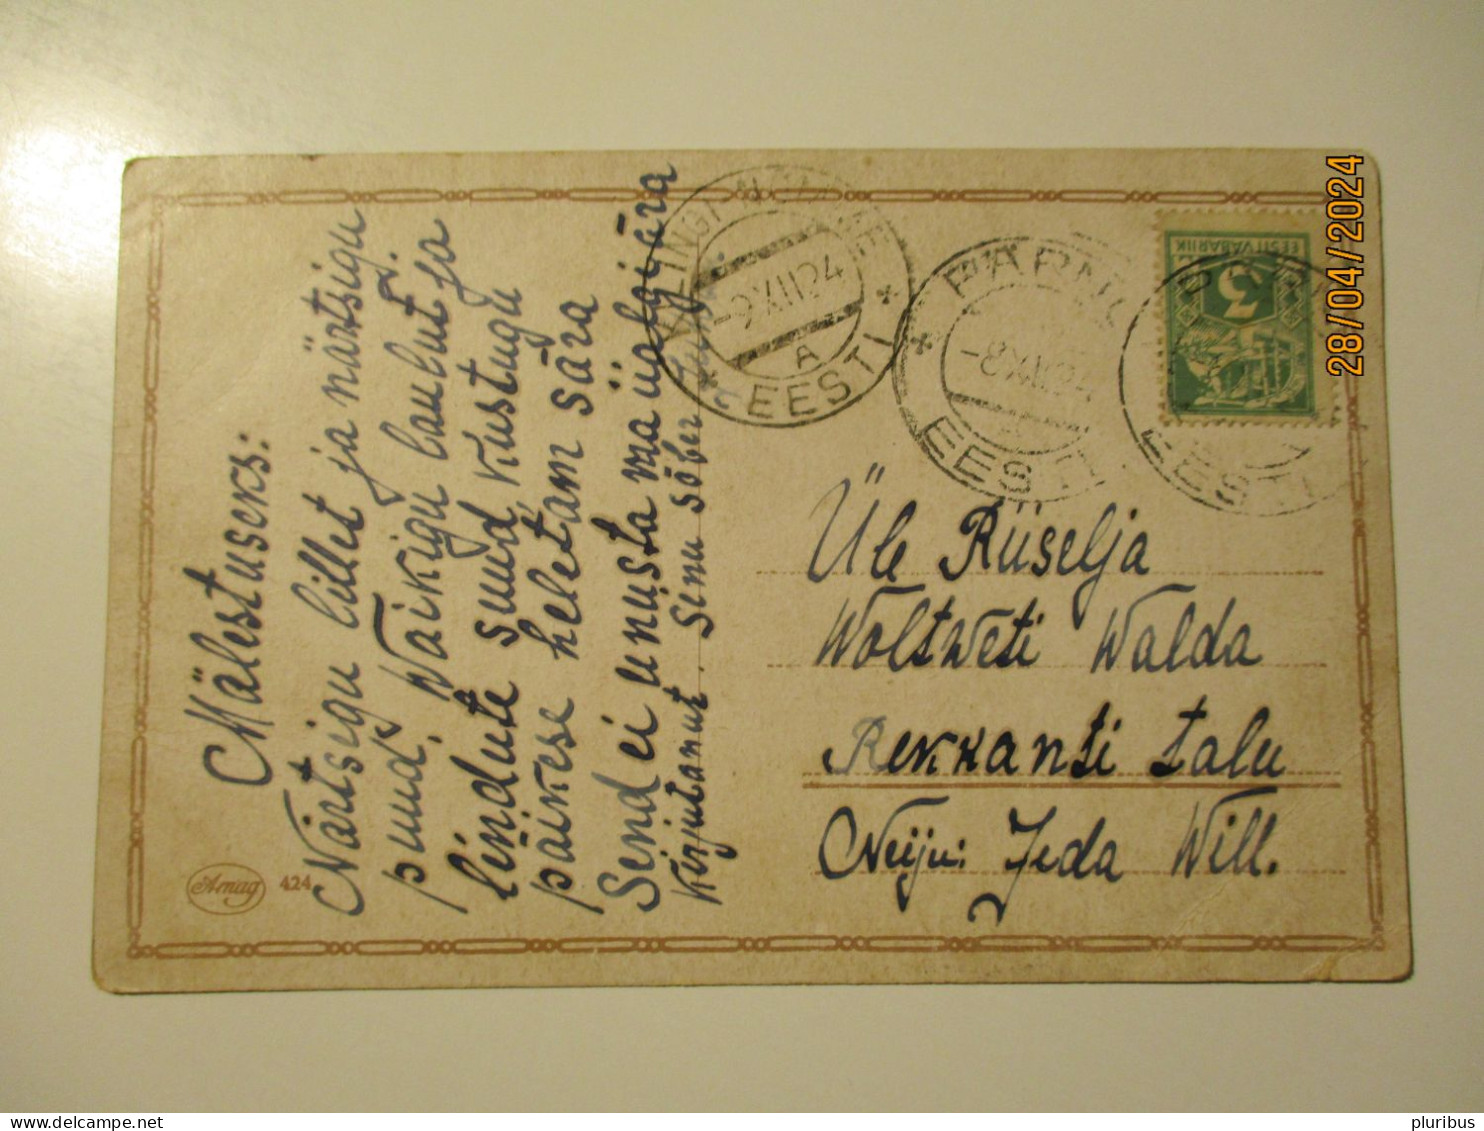 Mälestuseks:
Närtsigu lillet ja närtsigu
puud, Waikigu laulust ja
lindute suud, Kustugu
päikese heletam sära
Send ei unusta ma iialgi ära
Kirjutanut. Senu sõber
Amag 424
KILINGI-NÕMME
-9 XII 24
A
EESTI
PÄRNU
-8 XII 24
EESTI
EESTI VABARIIK
3
EESTI
Üle Riiselja
Woltweti Walda
Rekkanti talu
Neiju: Jeda Will.
28/04/2024
pluribus